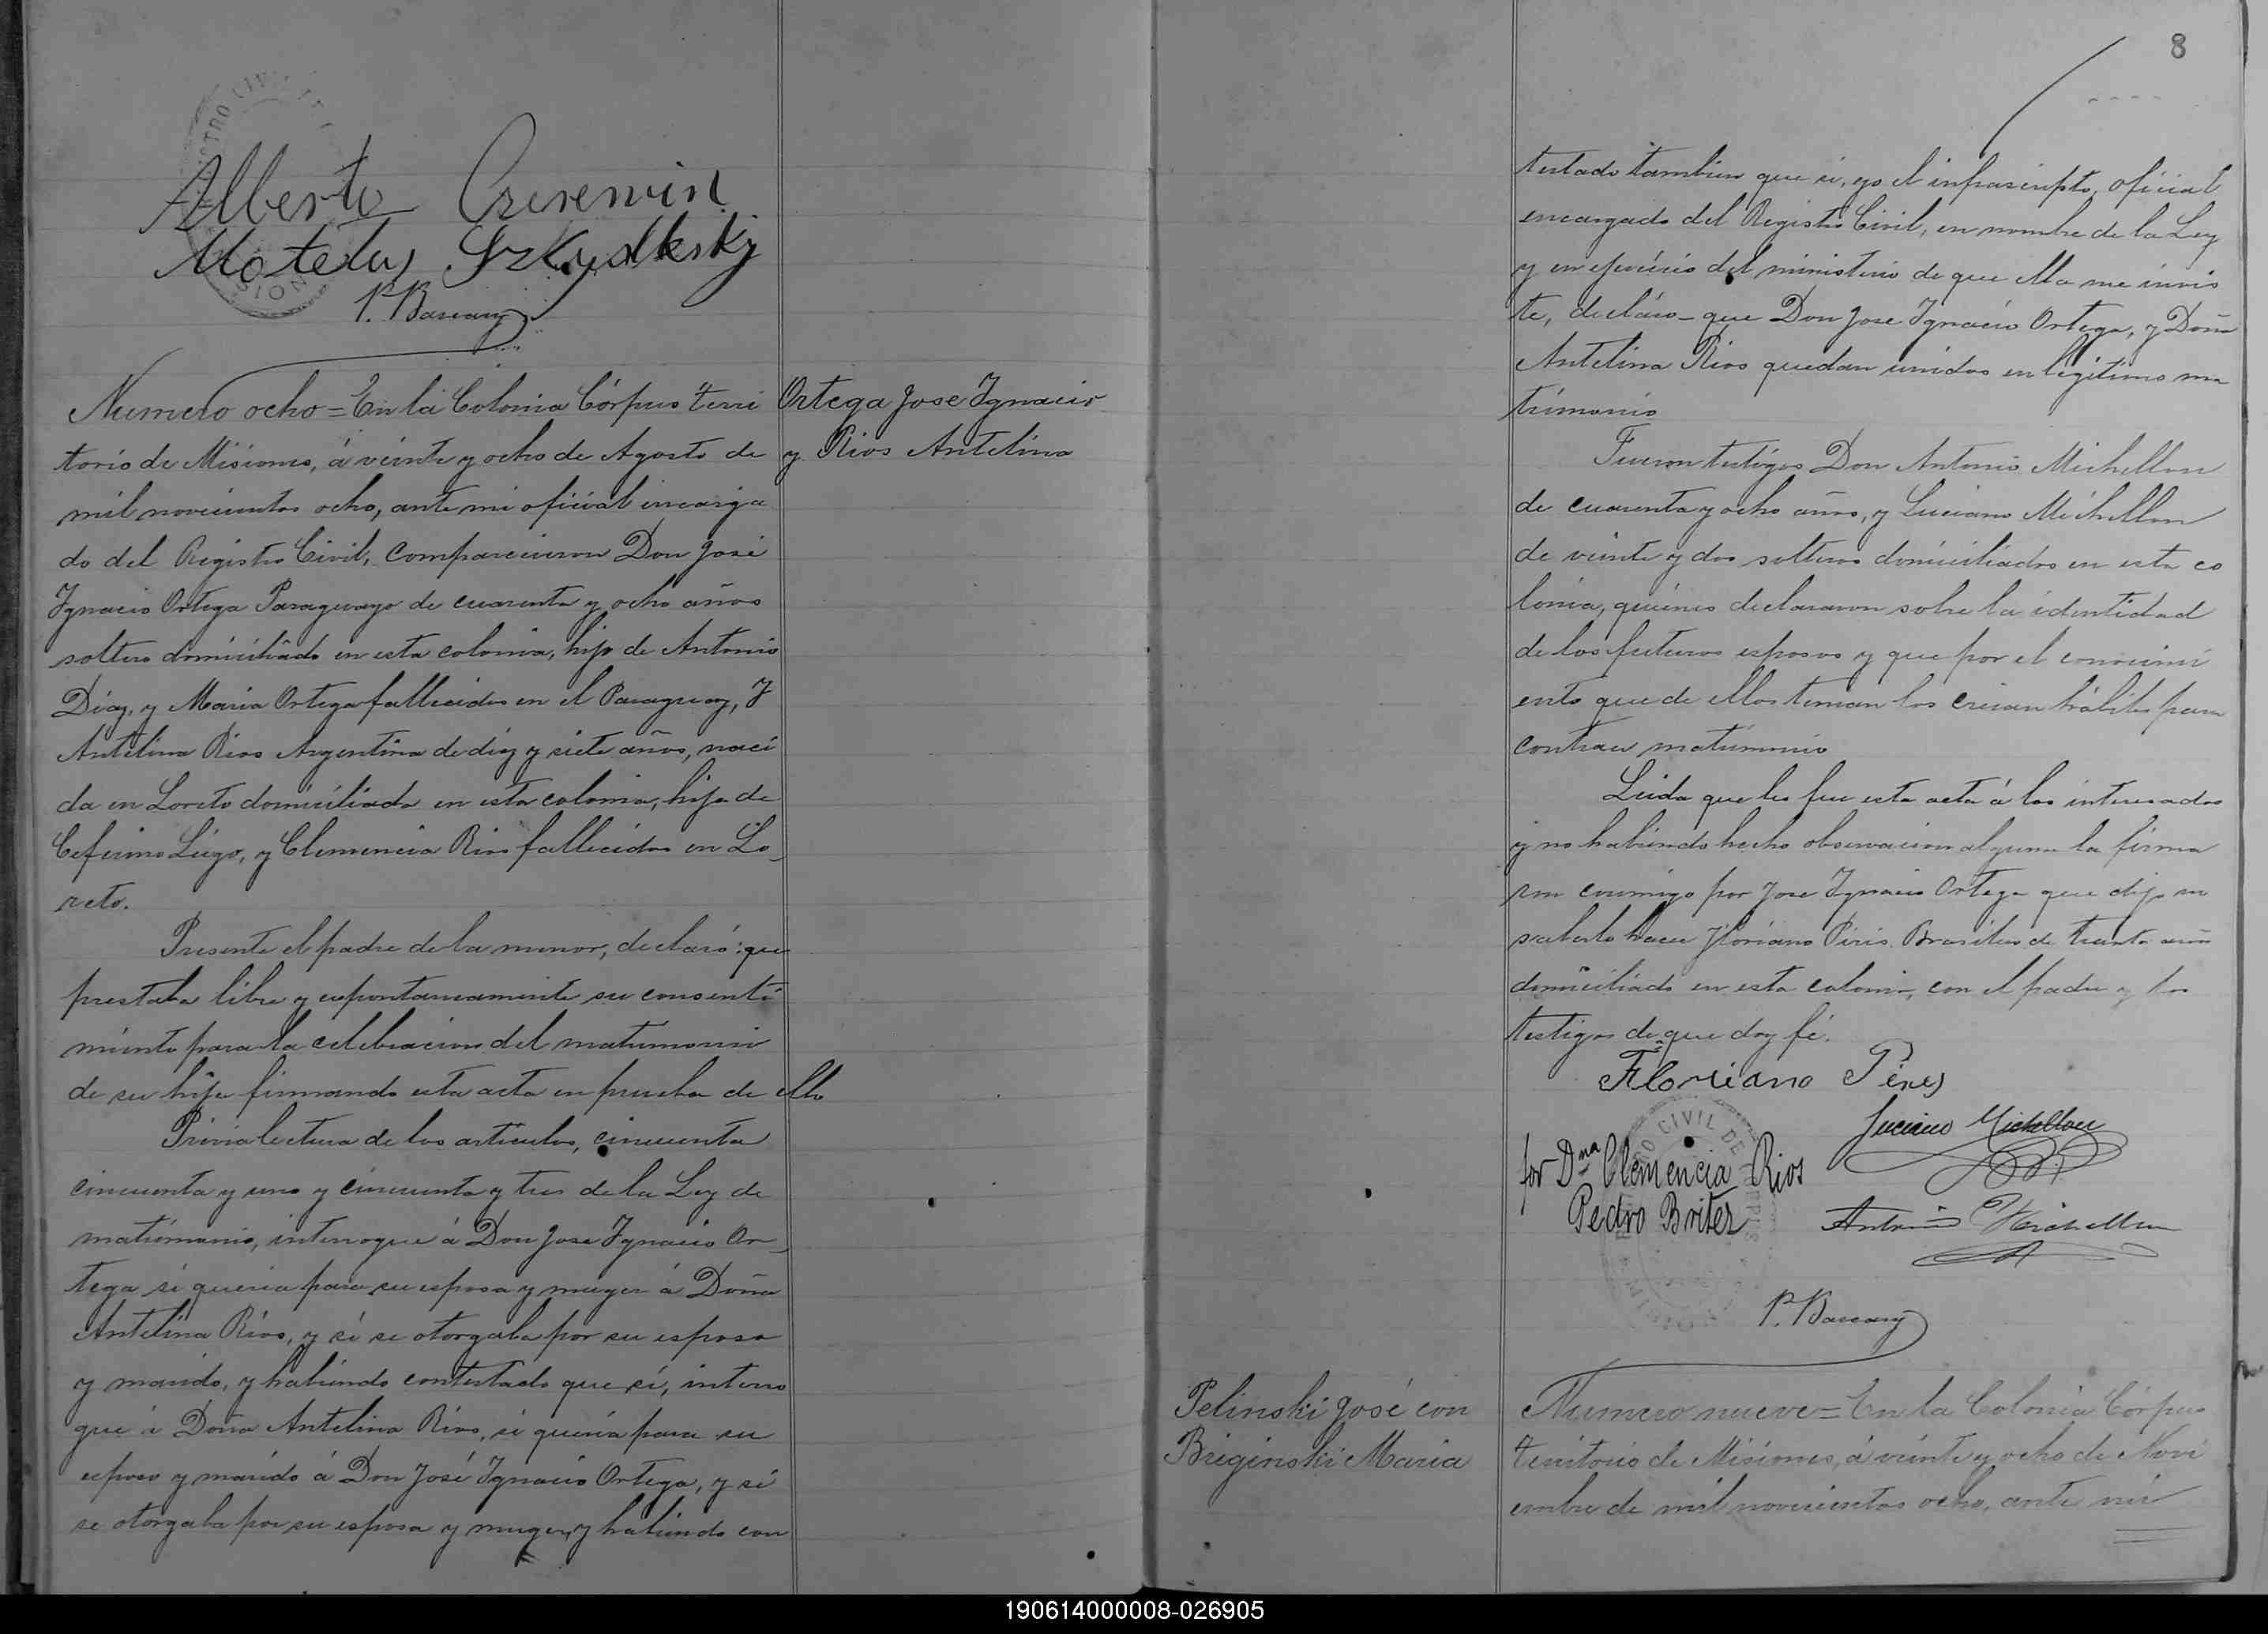 8
Alberto Czerewin
Motetus Szkudlesky
P. Bareany
Numero ocho = En la Colonia Córpus terri
torio de Misiones, á veinte y ocho de Agosto de
mil novecientos ocho, ante mi oficial encarga
do del Registro Civil, comparecieron Don José
Ygnacio Ortega Paraguayo de cuarenta y ocho años
soltero domiciliado en esta colonia, hijo de Antonio
Diaz, y Maria Ortega fallecidos en el Paraguay, Y
Antelina Rios Argentina de diez y siete años, naci
da en Loreto domiciliada en esta colonia, hija de
Ceferino Lúgo, y Clemencia Rios fallecidos en Lo_
reto.
Presente el padre de la menor, declaró: que
prestaba libre y espontaneamente su consenti
miento para la celebracion del matrimonio
de su hija firmando esta acta en prueba de ello
Prévia lectura de los articulos, cincuenta
cincuenta y uno y cincuenta y tres de la Ley de
matrimonio, interrogué á Don Jose Ygnacio Or_
tega si queria para su esposa y muger á Doña
Antelina Rios, y si se otorgaba por su esposo
y marido, y habiendo contestado que sí, interro
gué á Doña Antelina Rios, si queria para su
esposo y marido á Don José Ygnacio Ortega, y si
se otorgaba por su esposa y muger, y habiendo con
Ortega Jose Ygnacio
y Rios Antelina
testado tambien que si, yo el infrascripto, oficial
encargado del Registro Civil, en nombre de la Ley
y en ejercicio del ministerio de que ella me invis
te, decláro_ que Don Jose Ygnacio Ortega, y Doña
Antelina Rios quedan unidos en legitimo ma
trimonio
Fueron testigos Don Antonio Michellon
de cuarenta y ocho años, y Luciano Michellon
de veinte y dos solteros domiciliados en esta co
lonia, quienes declararon sobre la identidad
de los futuros esposos y que por el conocimi
ento que de ellos tenian los creian hábiles para
contraer matrimonio
Leida que les fue esta acta á los interesados
y no habiendo hecho observacion alguna la firma
ron conmigo por Jose Ygnacio Ortega que dijo no
saberlo hacer Floriano Piris Brasilero de treinta años
domiciliado en esta colonia, con el padre y los
testigos de que doy fé.
Floriano Pires
Luciano Michellon
for Dna Clemencia Rios
Pedro Britez
Antonio Michellon
P. Bareany
Pelinski José con
Briginski Maria
Numero nueve = En la Colonia Córpus
territorio de Misiones, á veinte y ocho de Novi
embre de mil novecientos ocho, ante mi
190614000008-026905